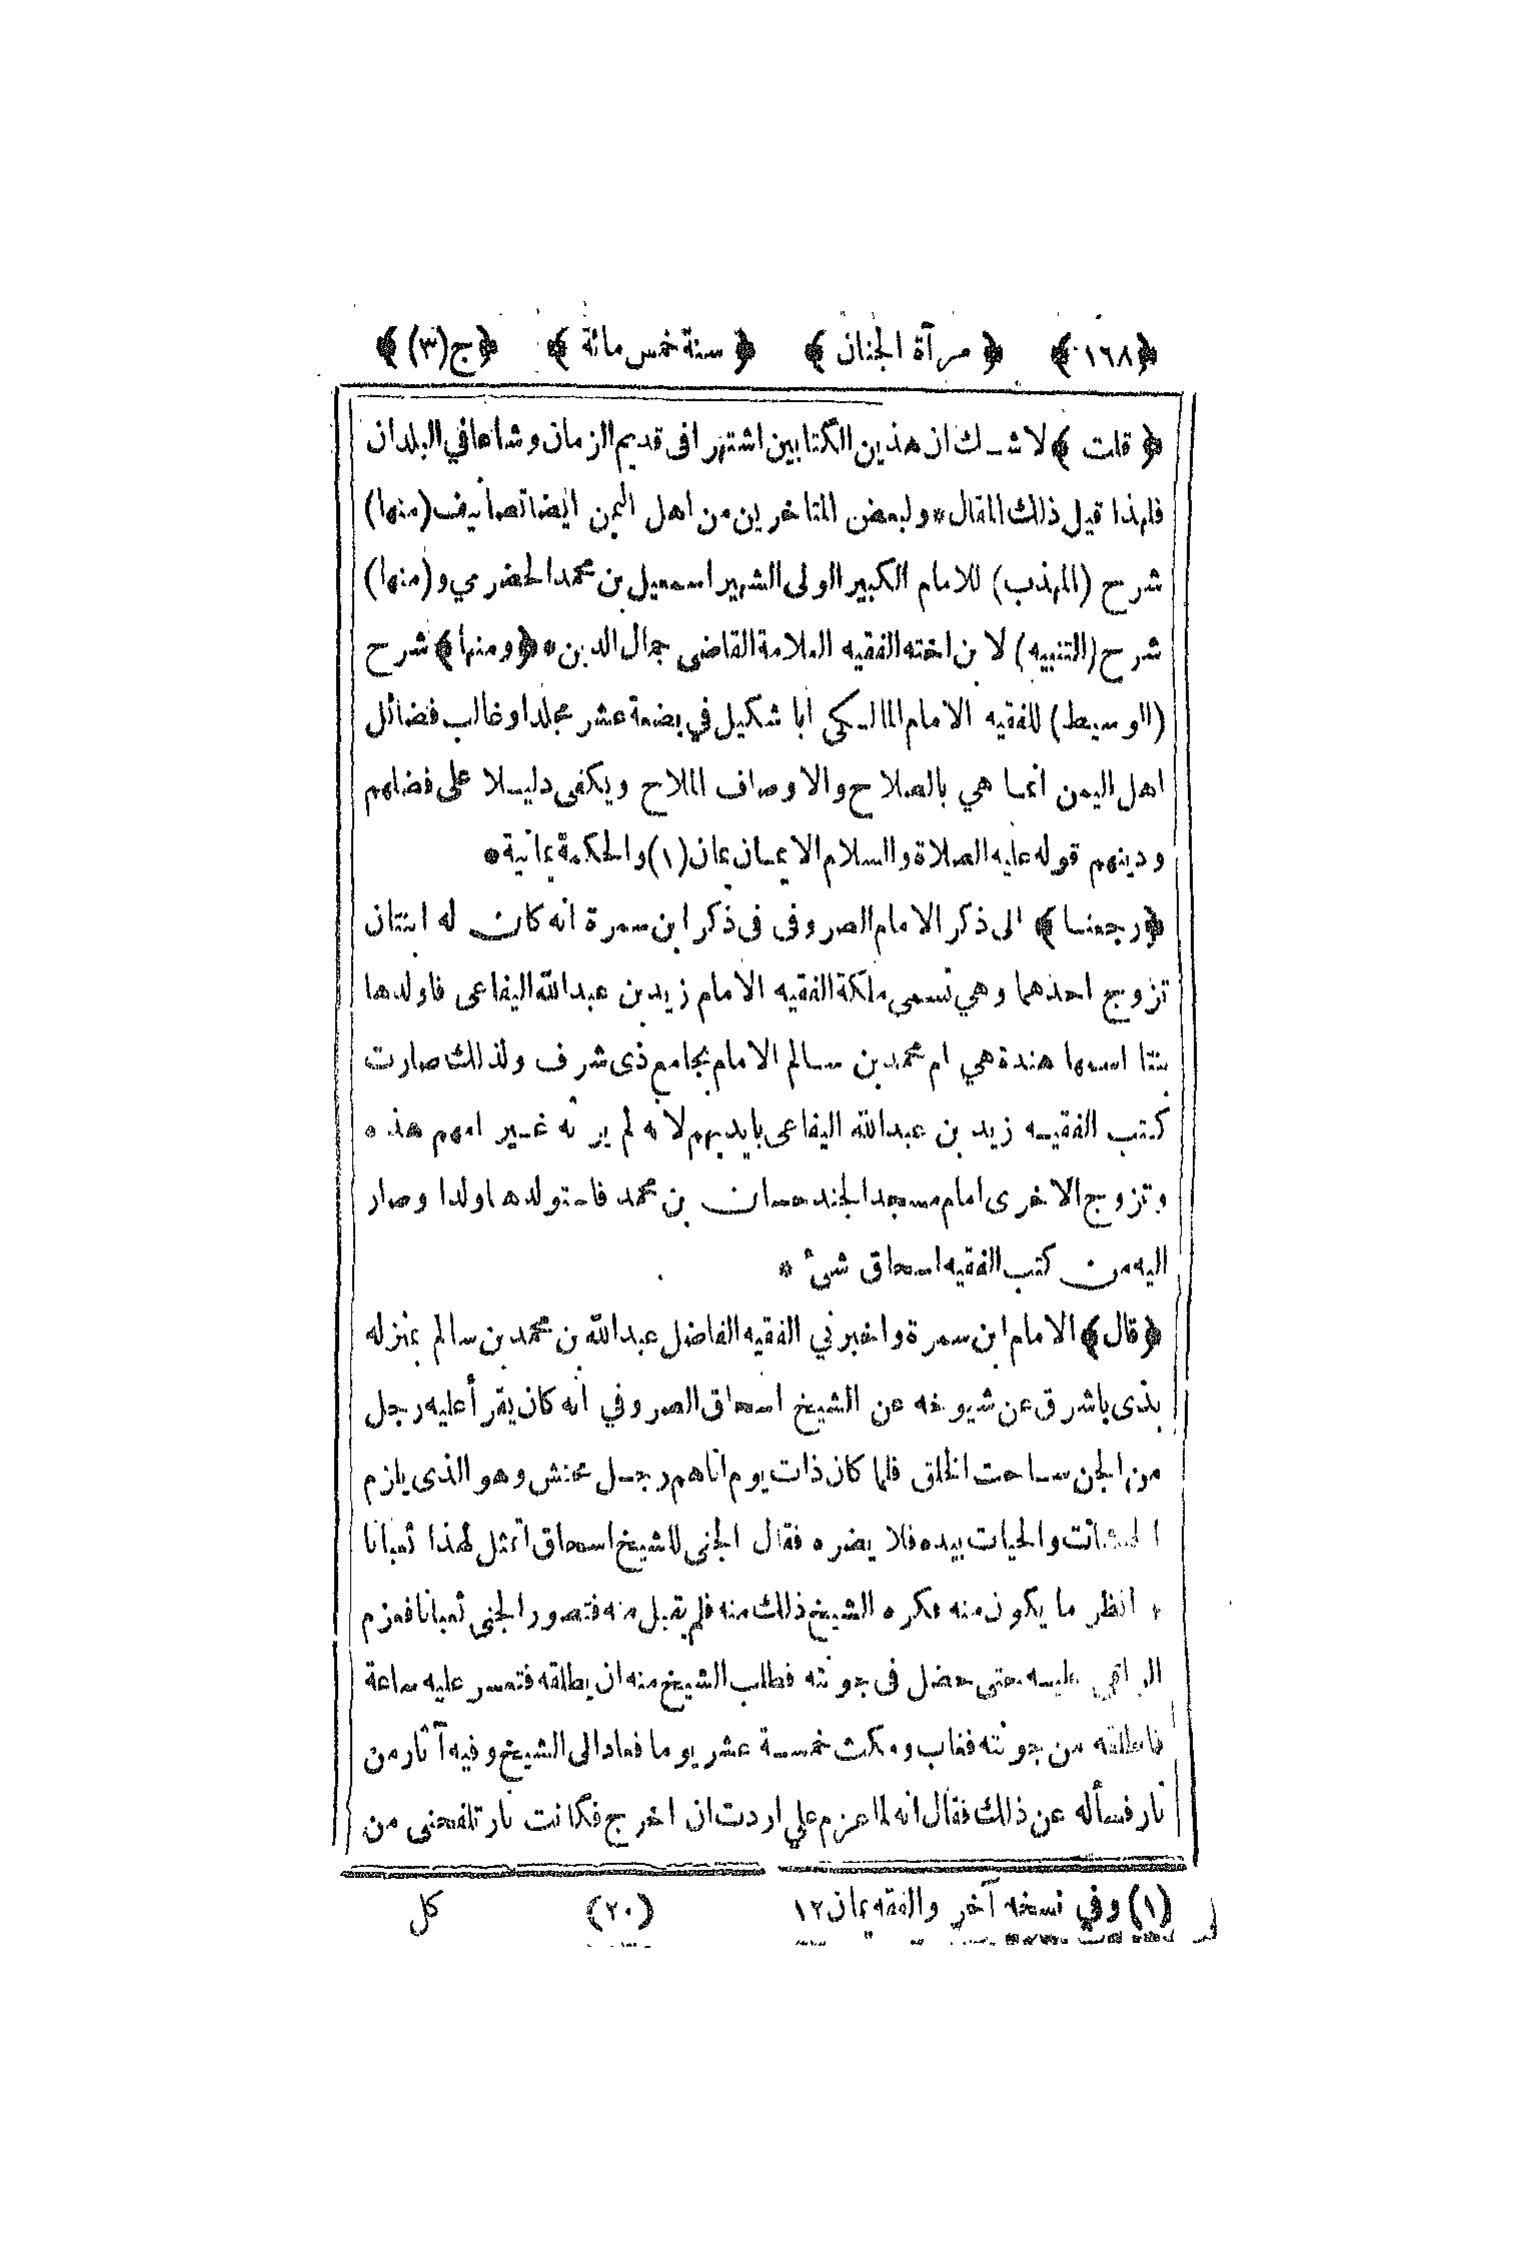 ﴿١٦٨﴾ ﴿مرآة الجنان﴾ ﴿سنة خمس مائة﴾ ﴿ج(٣)﴾
﴿قلت﴾ لا شك ان هذين الكتابين اشتهرا فى قديم الزمان وشاعا في البلدان
فلهذا قيل ذلك المقال * ولبعض المتاخرين من اهل اليمن ايضا تصانيف (منها)
شرح (المهذب) للامام الكبير الولى الشهير اسمعيل بن محمد الحضرمي و (منها)
شرح (التنبيه) لا بن اخته الفقيه العلامة القاضى جمال الدين * ﴿ومنها﴾ شرح
(الوسيط) للفقيه الامام المالكى ابا شكيل في بضعة عشر مجلدا وغالب فضائل
اهل اليمن انما هي بالصلاح والاوصاف الملاح ويكفى دليلا على فضلهم
ودينهم قوله عليه الصلاة والسلام الايمان يمان (١) والحكمة يمانية *
﴿رجعنا﴾ الى ذكر الامام الصروفى فى ذكر ابن سمرة انه كان له ابنتان
تزوج احدهما وهي تسمى ملكة الفقيه الامام زيد بن عبدالله اليفاعى فاولدها
بنتا اسمها هندة هي ام محمد بن سالم الامام بجامع ذى شرف ولذلك صارت
كتب الفقيه زيد بن عبدالله اليفاعى بايديهم لانه لم يرثه غير امهم هذه
وتزوج الاخرى امام مسجد الجند حسان بن محمد فاستولدها ولدا وصار
اليه من كتب الفقيه اسحاق شئ *
﴿قال﴾ الامام ابن سمرة واخبرني الفقيه الفاضل عبدالله بن محمد بن سالم بمنزله
بذى باشرق عن شيوخه عن الشيخ اسحاق الصروفي انه كان يقرأ عليه رجل
من الجن ساحت الخلق فلما كان ذات يوم اتاهم رجل محنش وهو الذى يلزم
الحنشات والحيات بيده فلا يضره فقال الجنى للشيخ اسحاق اتمثل لهذا ثعبانا
و انظر ما يكون منه فكره الشيخ ذلك منه فلم يقبل منه فتصور الجنى ثعبانا فعزم
الراقى عليه حتى حضل فى جونته فطلب الشيخ منه ان يطلقه فتعسر عليه ساعة
فاطلقه من جونته فغاب ومكث خمسة عشر يوما فعاد الى الشيخ وفيه آثار من
نار فسأله عن ذلك فقال انه لما عزم علي اردت ان اخرج فكانت نار تلفحنى من
(١) وفي نسخه آخر والفقه يمان ١٢ (٢٠) كل